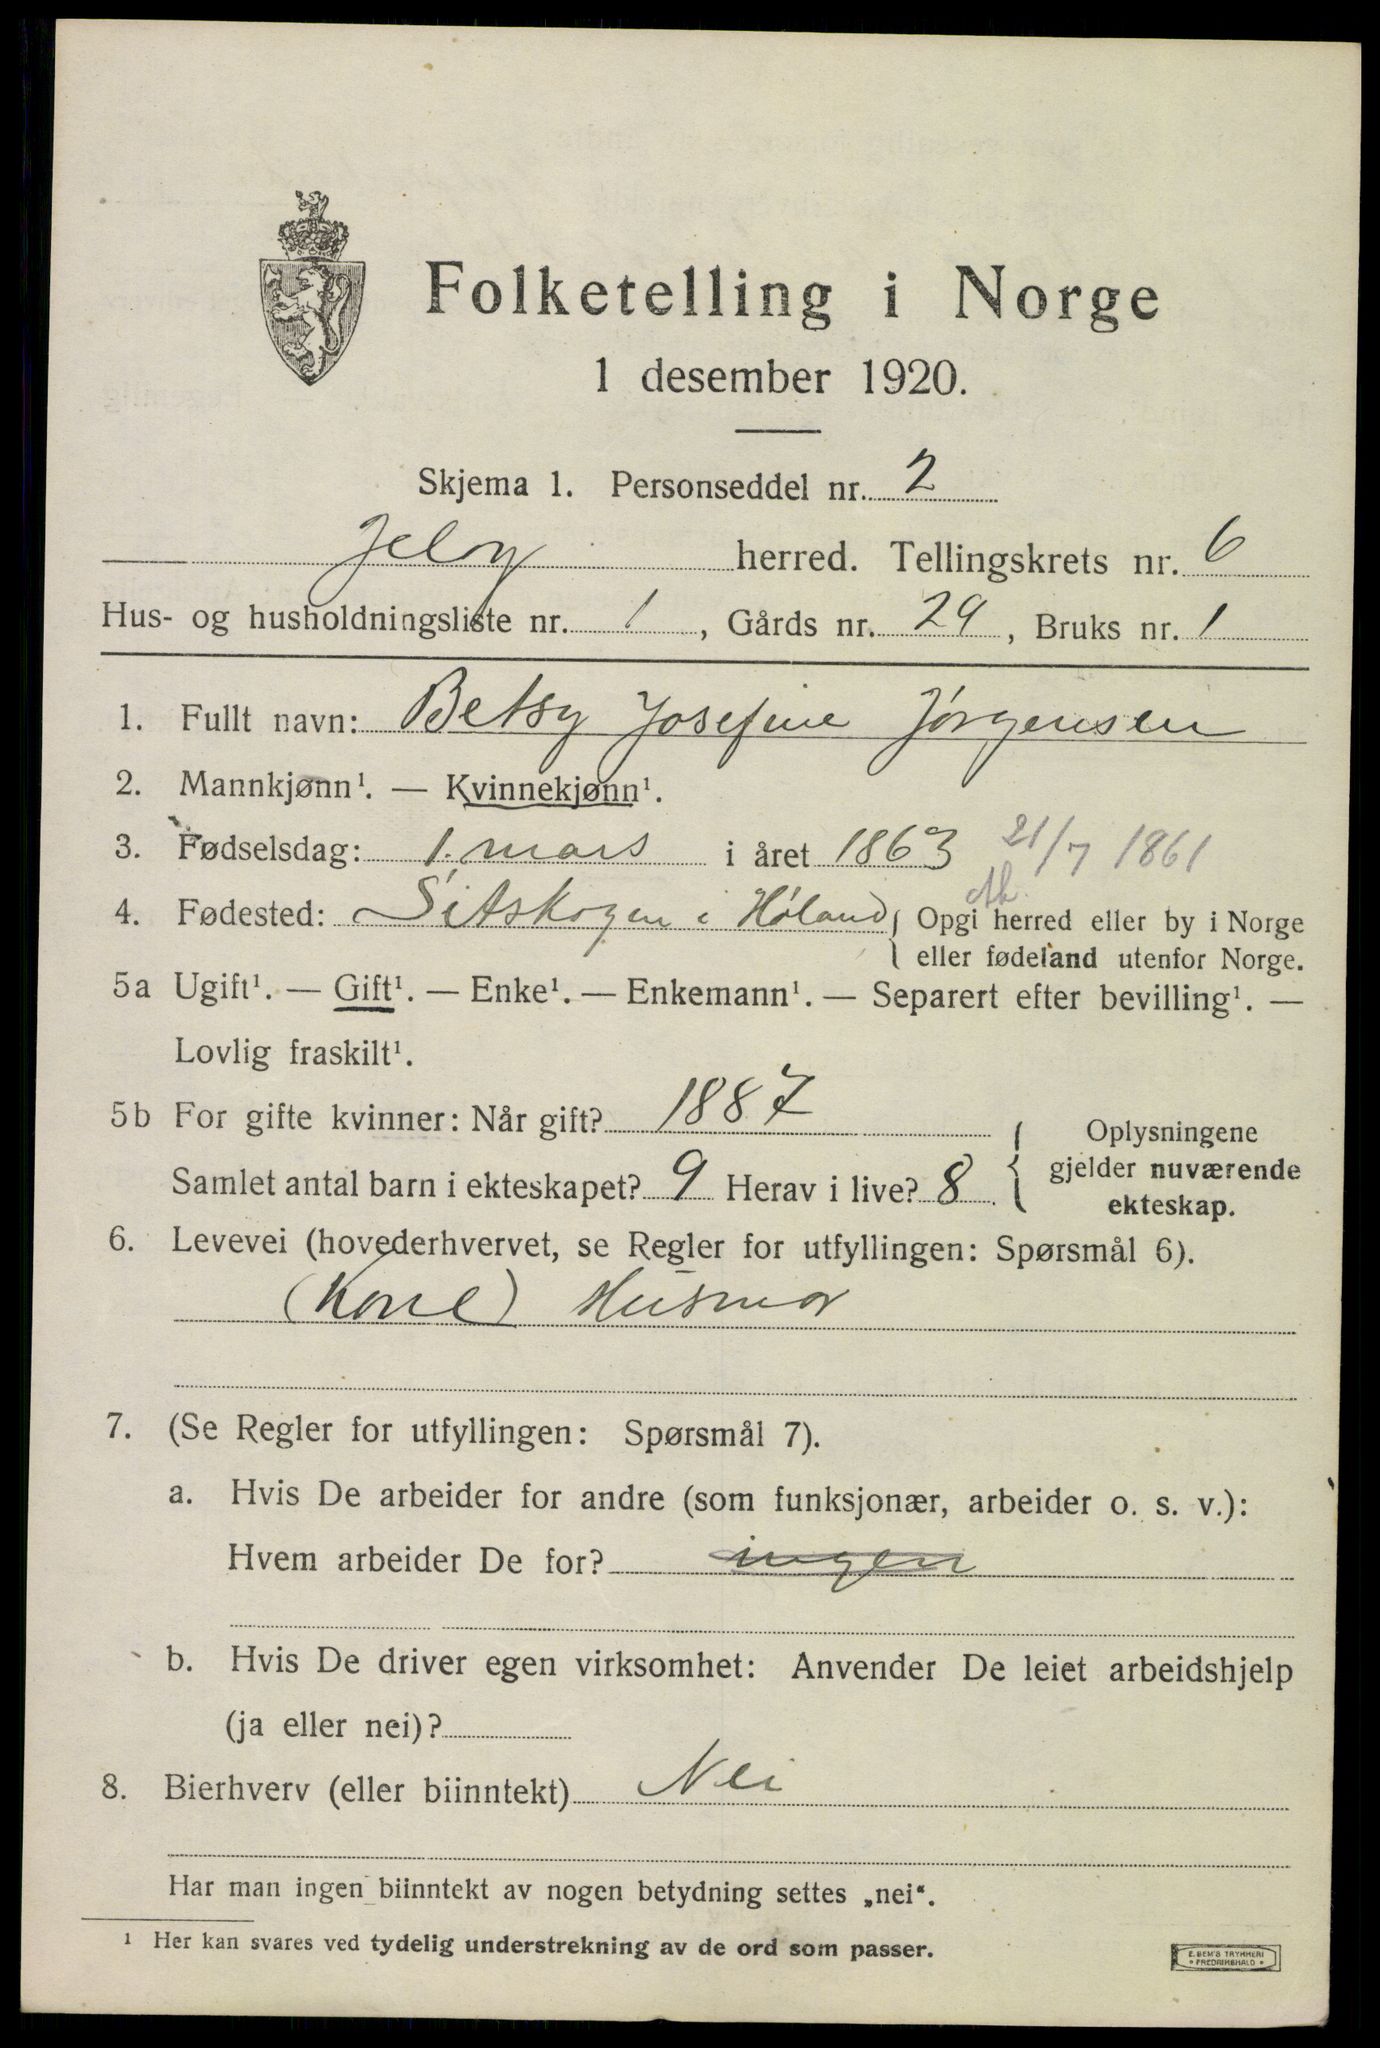 Folketelling i Norge
1 desember 1920.
Skjema 1. Personseddel nr. 2
Jeløy herred. Tellingskrets nr. 6
Hus- og husholdningsliste nr. 1, Gårds nr. 29, Bruks nr. 1
1. Fullt navn: Betsy Josefine Jørgensen
2. Mannkjønn¹. — Kvinnekjønn¹.
3. Fødselsdag: 1. mars i året 1863 21/7 1861
4. Fødested: Sitskogen i Høland { Opgi herred eller by i Norge
eller fødeland utenfor Norge.
5a Ugift¹. — Gift¹. — Enke¹. — Enkemann¹. — Separert efter bevilling¹. —
Lovlig fraskilt¹.
5b For gifte kvinner: Når gift? 1887
Samlet antal barn i ekteskapet? 9 Herav i live? 8.
{ Oplysningene
gjelder nuværende
ekteskap.
6. Levevei (hovederhvervet, se Regler for utfyllingen: Spørsmål 6).
(Kone) Husmor
7. (Se Regler for utfyllingen: Spørsmål 7).
a. Hvis De arbeider for andre (som funksjonær, arbeider o. s. v.):
Hvem arbeider De for? ingen
b. Hvis De driver egen virksomhet: Anvender De leiet arbeidshjelp
(ja eller nei)?
8. Bierhverv (eller biinntekt) Nei
Har man ingen biinntekt av nogen betydning settes „nei“.
¹ Her kan svares ved tydelig understrekning av de ord som passer.
E. SEM'S TRYKKERI
• FREDRIKSHALD •